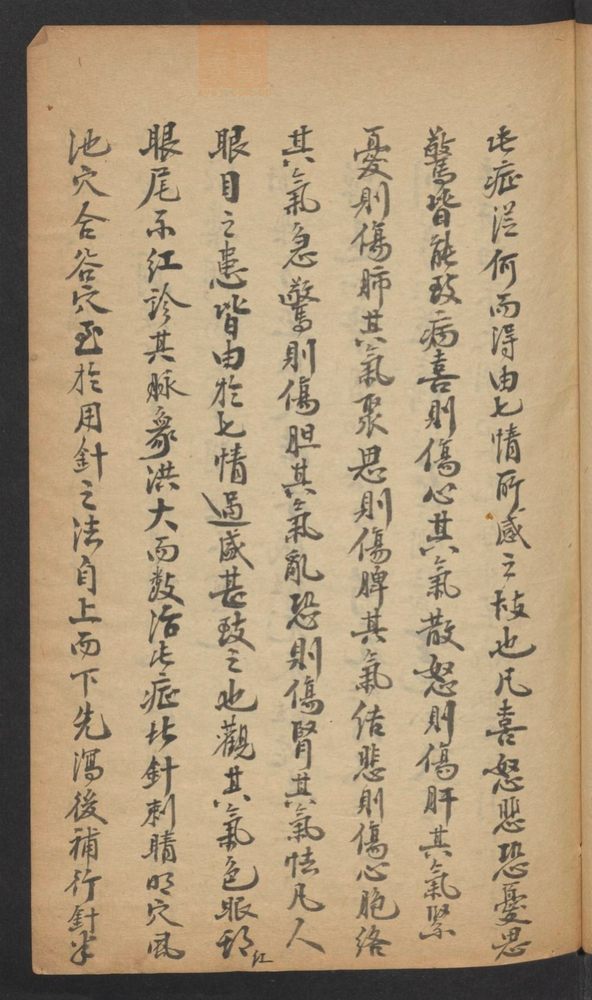 此症從何而得由七情所感之故也凡喜怒悲恐憂思
驚皆能致病喜則傷心其氣散怒則傷肝其氣緊
憂則傷肺其氣聚思則傷脾其氣結悲則傷心胞絡
其氣急驚則傷胆其氣亂恐則傷腎其氣怯凡人
眼目之患皆由於七情過感甚致之也觀其氣色眼邪紅
眼尾不紅診其脉象洪大而数治此症此針刺睛明穴風
池穴合谷穴至於用針之法自上而下先瀉後補行針半